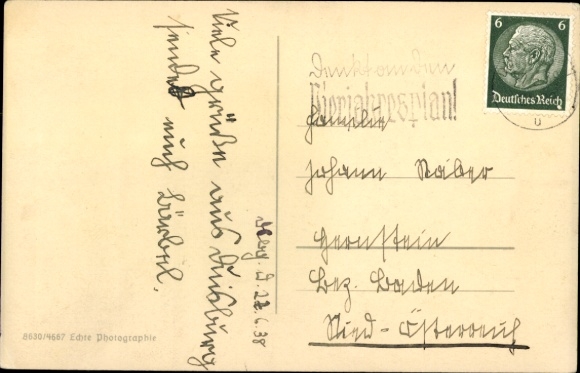 Viele Grüße aus Duisburg
sendet euch Bärbel.
Dbg. d. 22.6.38
6 6
Deutsches Reich
Denkt an den
Vierjahresplan!
Familie
Johann Naber
Hernstein
Bez. Baden
Nied-Österreich
8630/4687 Echte Photographie